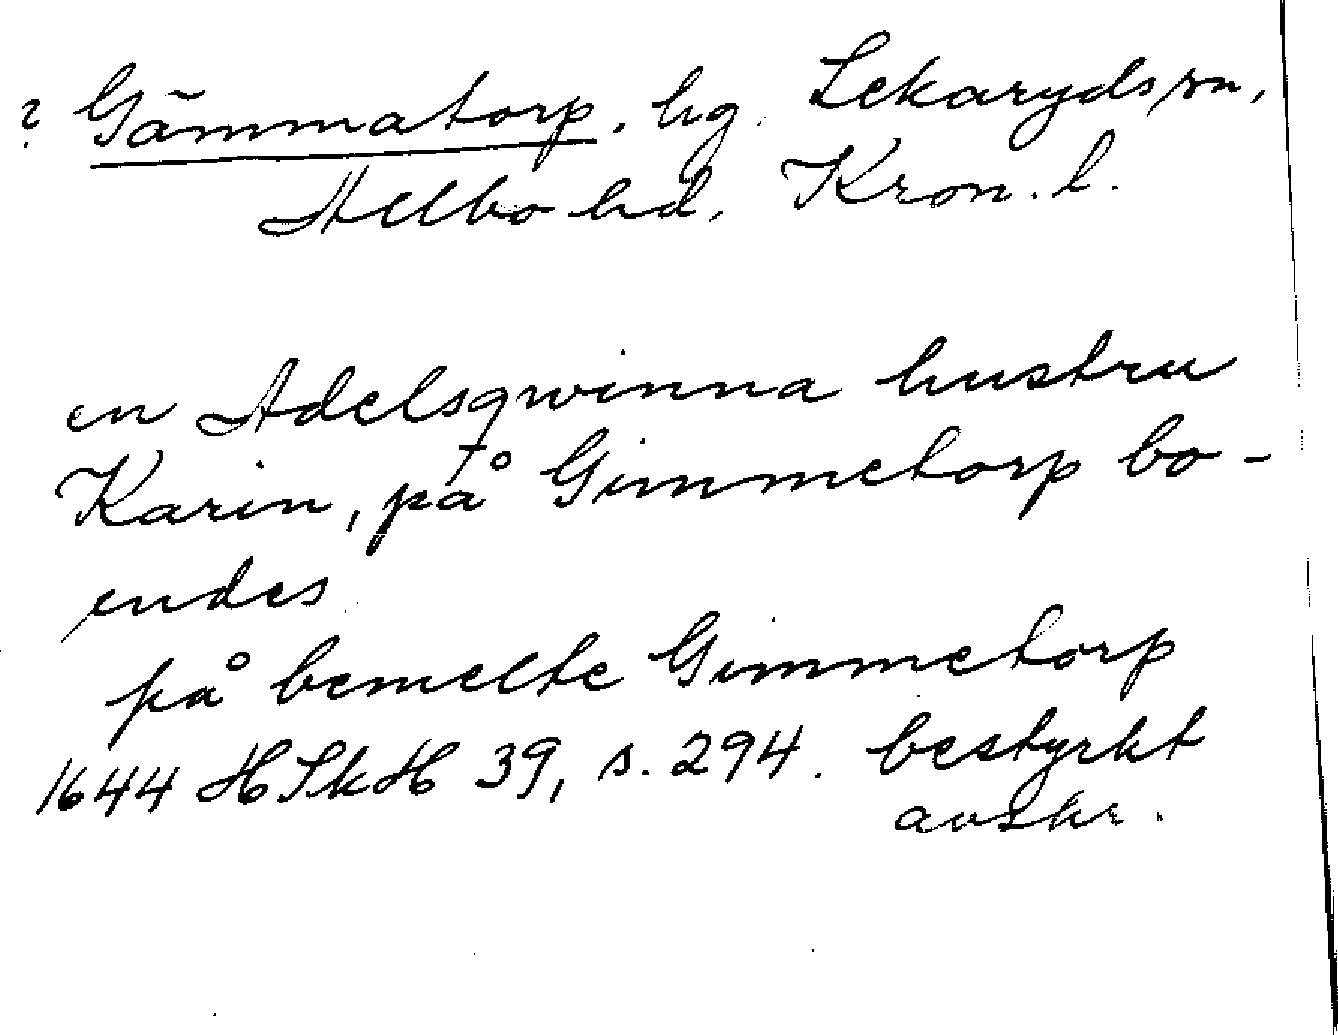 ? Gämmatorp. hg. Lekaryds sn,
Allbo hd, Kron. l.
en Adelsqwinna hustru
Karin, på Gimmetorp bo-
endes
på bemelte Gimmetorp
1644 HSkH 39, s. 294. bestyrkt
avskr.